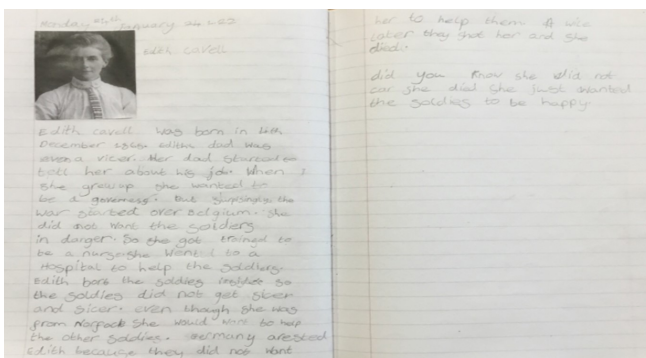 Monday
January
Edith Cavell
Edith Cavell was born in
December 1865. Edith dad was
even a vicer. Her dad started to
tell her about his job. When
she grew up she wanted to
be a governess. But surprisingly the
War started over Belgium. She
did not want the soldiers
in danger. So she got trained to
be a nurse. she Went to a
Hospital to help the soldiers.
Edith the soldies so
the soldies did not get sicer
and sicer. even though she was
from she would want to help
the other soldies. Germany arested
Edith because they did not want
her to help them A
later they shot her and she
died.
did you know she did not
car she died she just wanted
the soldies to be happy.